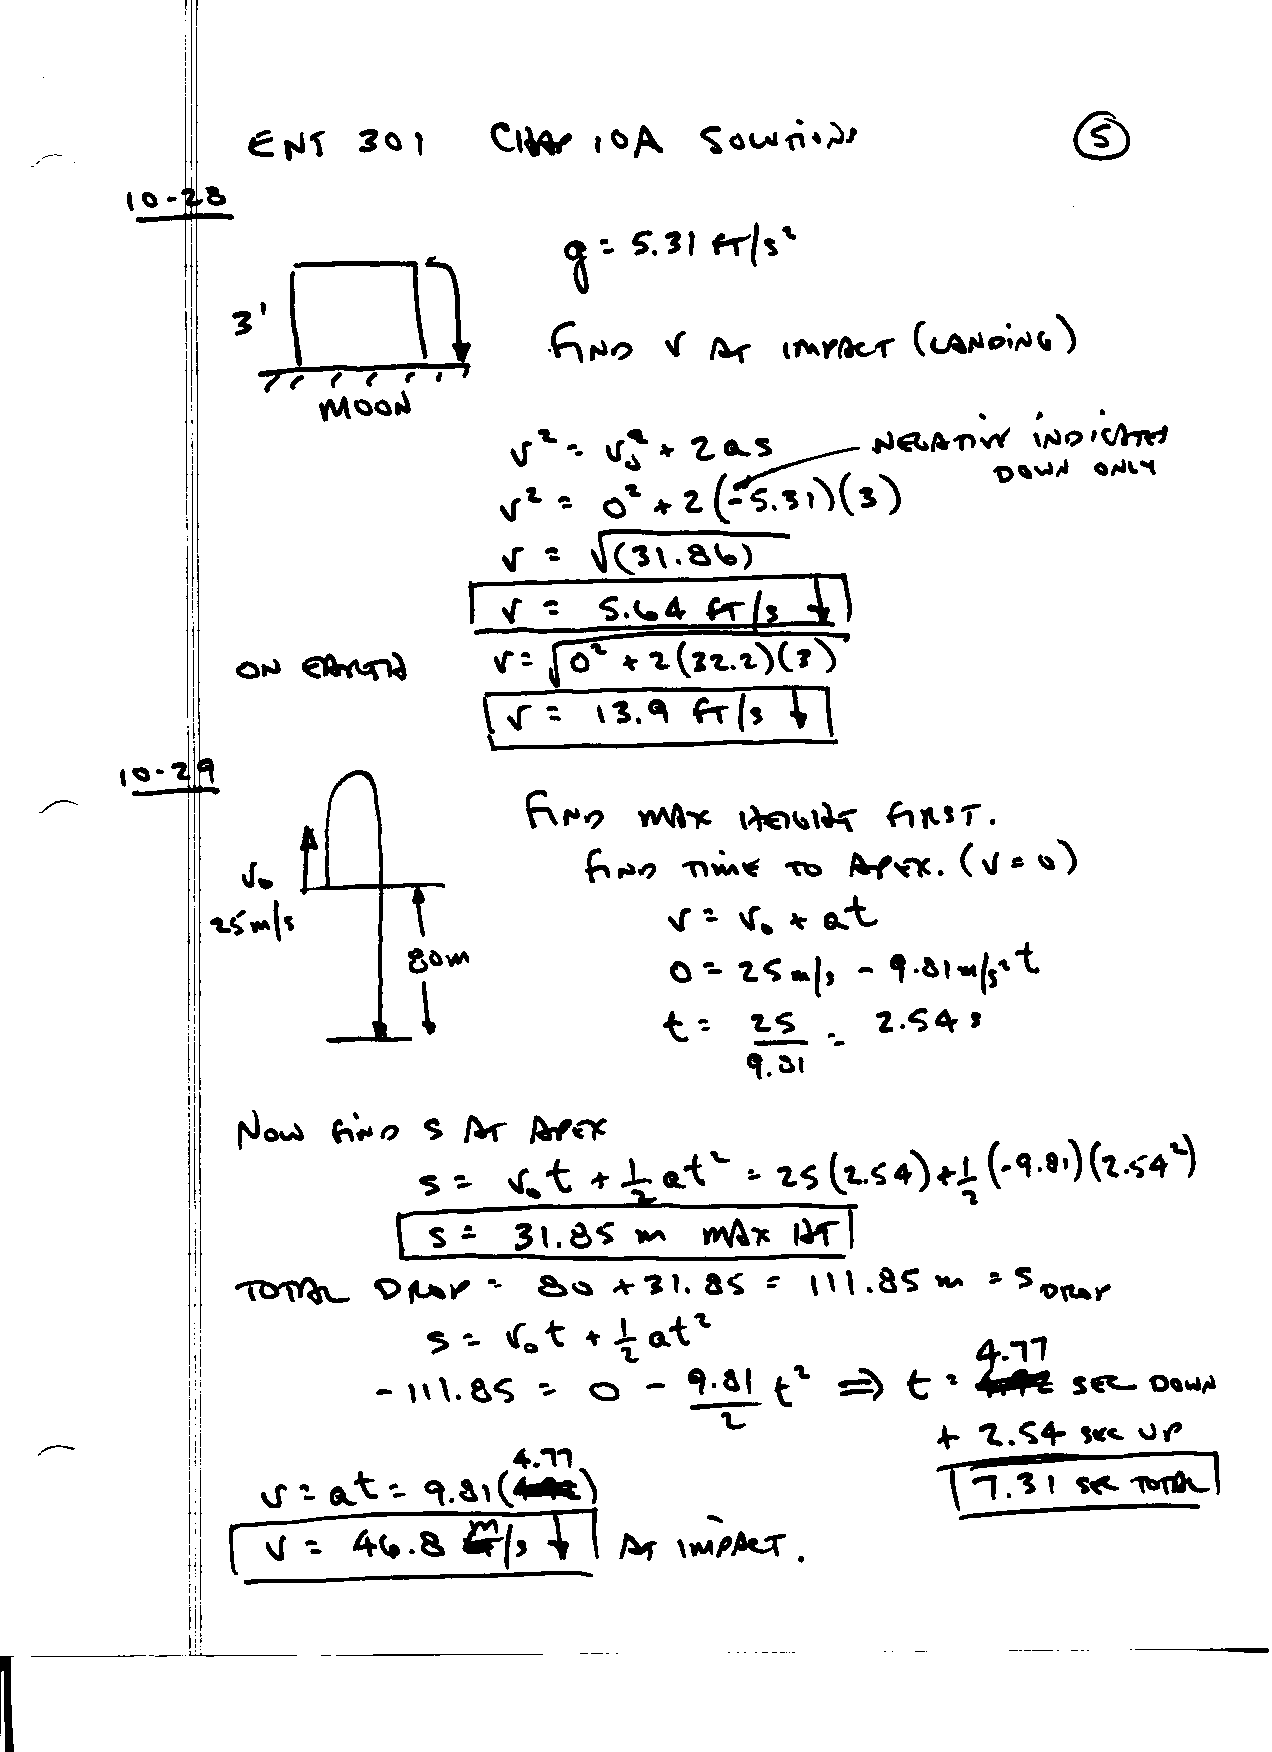 ENT 301 CHAP 10A SOLUTIONS 5
10-28
g = 5.31 FT/s²
3'
FIND V AT IMPACT (LANDING)
MOON
V² = V₀² + 2as
NEGATIVE INDICATES
DOWN ONLY
V² = 0² + 2(-5.31)(3)
V = √(31.86)
V = 5.64 FT/s ↓
ON EARTH V = √0² + 2(32.2)(3)
V = 13.9 FT/s ↓
10-29
FIND MAX HEIGHT FIRST.
FIND TIME TO APEX. (V = 0)
V₀
25 m/s
80m
V = V₀ + at
0 = 25 m/s - 9.81 m/s² t
t = 25/9.81 = 2.54 s
NOW FIND S AT APEX
S = V₀t + ½at² = 25(2.54) + ½(-9.81)(2.54²)
S = 31.85 m MAX HT
TOTAL DROP = 80 + 31.85 = 111.85 m = S DROP
S = V₀t + ½at²
-111.85 = 0 - 9.81/2 t² ⇒ t = 4.77 SEC DOWN
+ 2.54 SEC UP
7.31 SEC TOTAL
V = at = 9.81(4.77)
V = 46.8 m/s ↓ AT IMPACT.